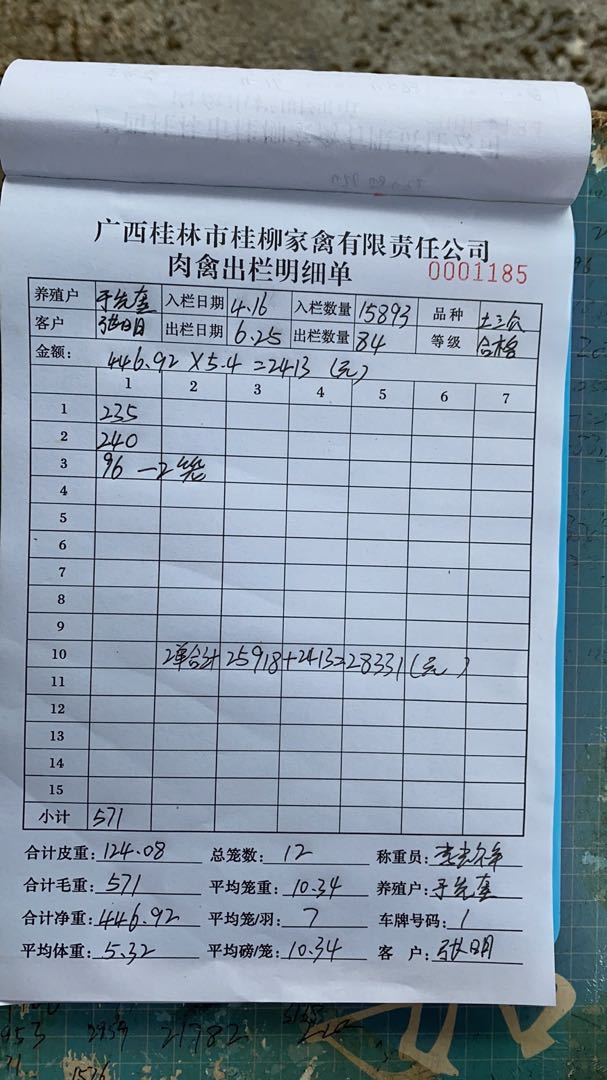 广西桂林市桂柳家禽有限责任公司
肉禽出栏明细单 0001185
养殖户 入栏日期 4.16 入栏数量 15893 品种 土三公
客户 张明 出栏日期 6.25 出栏数量 84 等级 合格
金额: 446.92×5.4=2413 (元)
1 2 3 4 5 6 7
1 235
2 240
3 96 —2笼
4
5
6
7
8
9
10 2单合计 25918+2413=28331(元)
11
12
13
14
15
小计 571
合计皮重: 124.08 总笼数: 12 称重员:
合计毛重: 571 平均笼重: 10.34 养殖户:
合计净重: 446.92 平均笼/羽: 7 车牌号码: 1
平均体重: 5.32 平均磅/笼: 10.34 客 户: 张明
953 2959 21782
71
1526